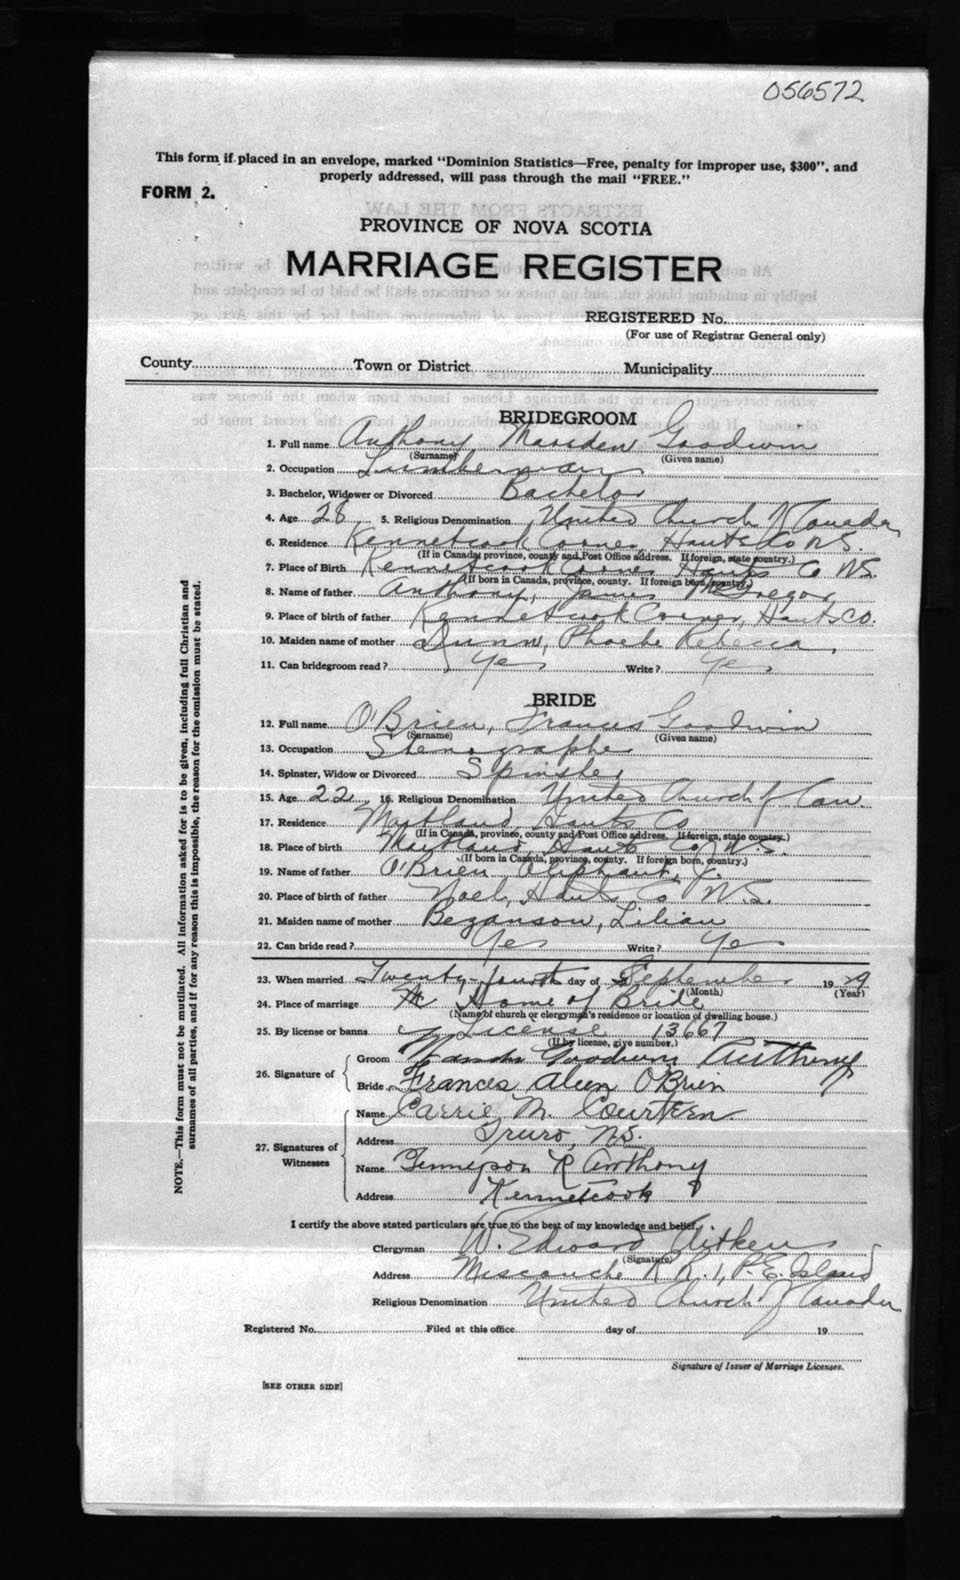 056572
This form if placed in an envelope, marked "Dominion Statistics—Free, penalty for improper use, $300", and
properly addressed, will pass through the mail "FREE."
FORM 2.
PROVINCE OF NOVA SCOTIA
MARRIAGE REGISTER
REGISTERED No.
(For use of Registrar General only)
County Town or District Municipality
BRIDEGROOM
1. Full name Anthony Marsden Goodwin
(Surname) (Given name)
2. Occupation Lumberman
3. Bachelor, Widower or Divorced Bachelor
4. Age 28 5. Religious Denomination United Church of Canada
6. Residence Kennetcook Corner, Hants Co N.S.
(If in Canada, province, county and Post Office address. If foreign, state country.)
7. Place of Birth Kennetcook Corner Hants Co N.S.
(If born in Canada, province, county. If foreign born, country.)
8. Name of father Anthony, James McGregor
9. Place of birth of father Kennetcook Corner, Hants Co.
10. Maiden name of mother Dunn, Phoebe Rebecca,
11. Can bridegroom read? Yes Write? Yes
BRIDE
12. Full name O'Brien, Frances Goodwin
(Surname) (Given name)
13. Occupation Stenographer
14. Spinster, Widow or Divorced Spinster
15. Age 22 16. Religious Denomination United Church of Can.
17. Residence Maitland, Hants Co
(If in Canada, province, county and Post Office address. If foreign, state country.)
18. Place of birth Maitland, Hants Co N.S.
(If born in Canada, province, county. If foreign born, country.)
19. Name of father O'Brien, Oliphant, J.
20. Place of birth of father Noel, Hants Co N.S.
21. Maiden name of mother Bezanson, Lilian
22. Can bride read? Yes Write? Yes
23. When married Twenty-fourth day of September 1929
(Month) (Year)
24. Place of marriage At Home of Bride
(Name of church or clergyman's residence or location of dwelling house.)
25. By license or banns License 13667
(If by license, give number.)
26. Signature of Groom Goodwin Anthony
Bride Frances Aleen O'Brien
27. Signatures of Witnesses Name Carrie M. Courteen
Address Truro, N.S.
Name Tennyson R Anthony
Address Kennetcook
I certify the above stated particulars are true to the best of my knowledge and belief.
Clergyman W. Edward Aitken
(Signature)
Address Miscouche R.R.1, P.E. Island
Religious Denomination United Church of Canada
Registered No. Filed at this office day of 19
Signature of Issuer of Marriage Licenses.
[SEE OTHER SIDE]
NOTE.—This form must not be mutilated. All information asked for is to be given, including full Christian and
surnames of all parties, and if for any reason this is impossible, the reason for the omission must be stated.